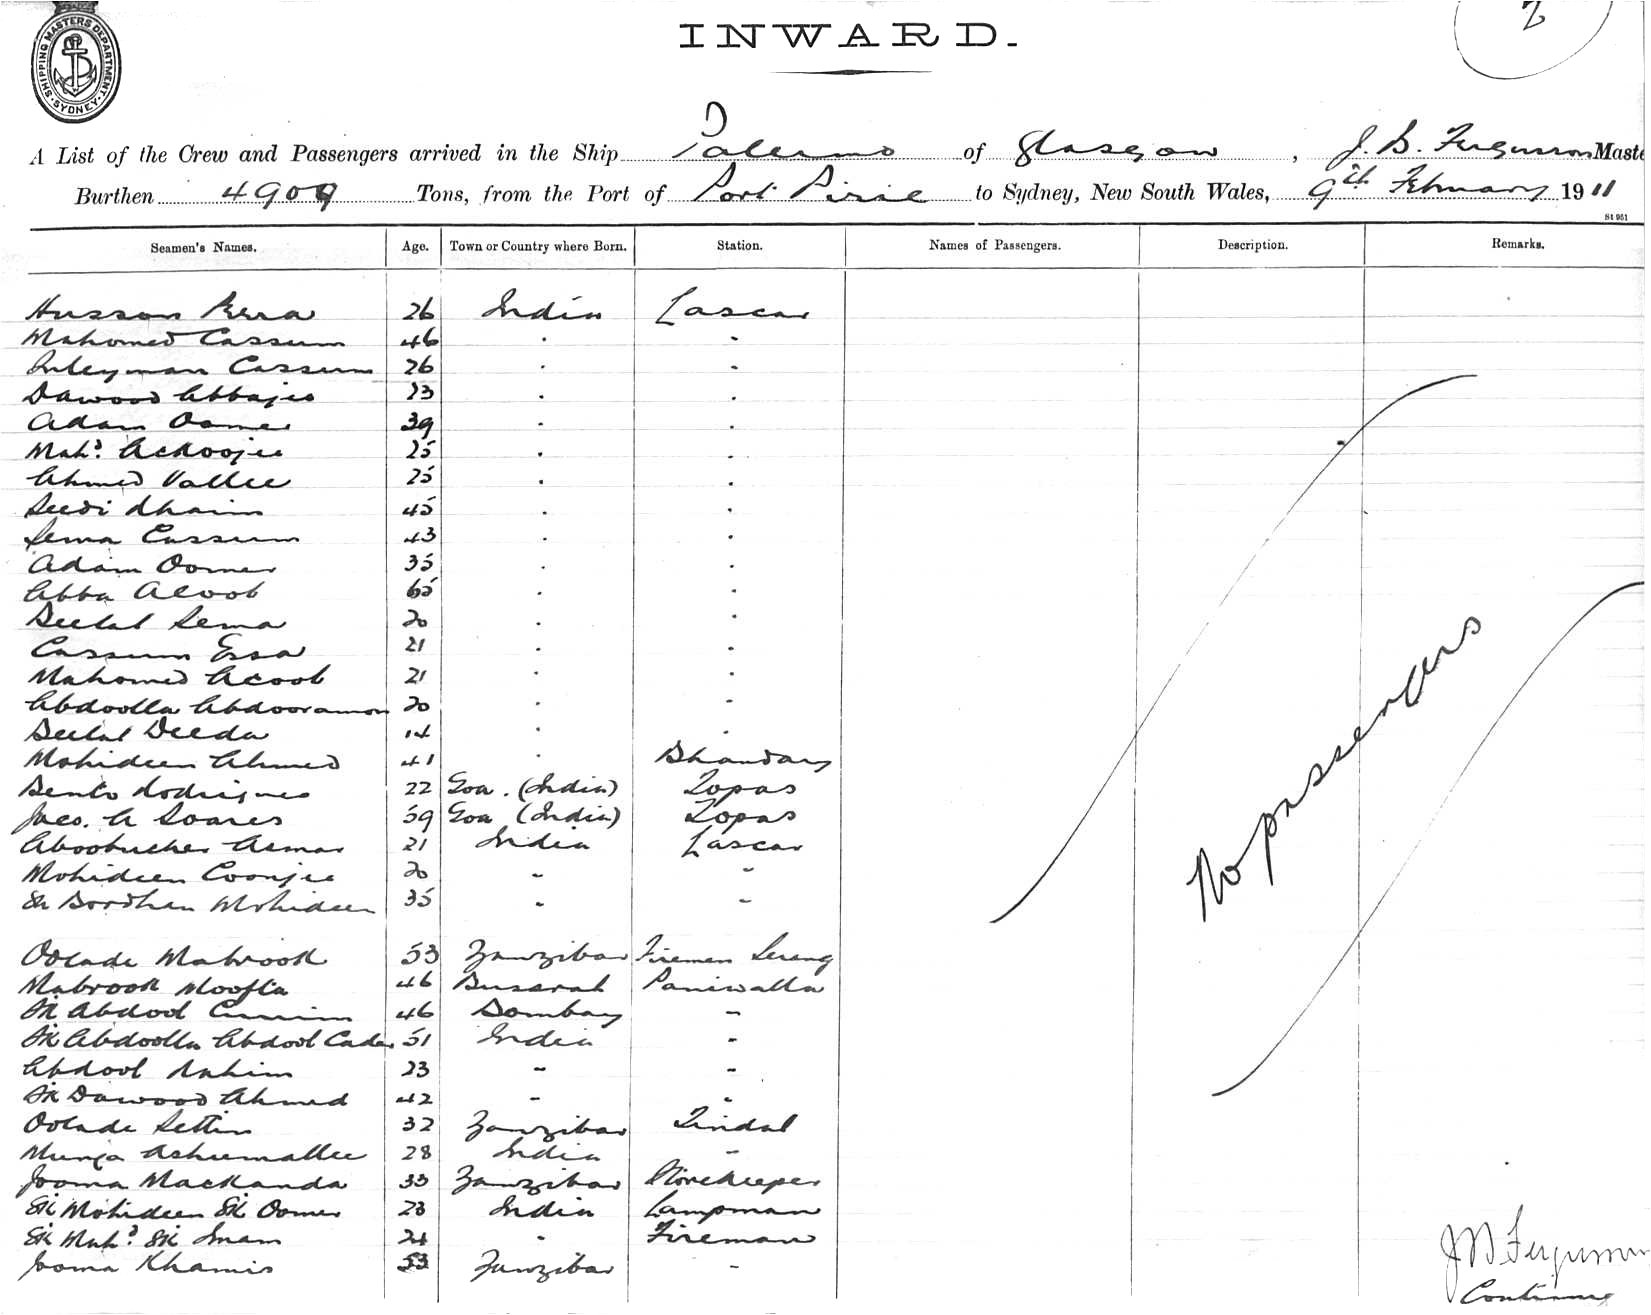 2
SHIPPING MASTERS DEPARTMENT
SYDNEY
INWARD.
A List of the Crew and Passengers arrived in the Ship Palermo of Glasgow, J. B. Fergusson Maste
Burthen 4909 Tons, from the Port of Port Pirie to Sydney, New South Wales, 9th February 1911
St 951
Seamen's Names. Age. Town or Country where Born. Station. Names of Passengers. Description. Remarks.
Husson 26 India Lascar
Mahomed Cassum 46 . "
Suleyman Cassum 26 . "
Dawood Abbajee 23 . .
Adam Oomer 39 . .
Mahd. Ackoojee 25 . .
Ahmed Vallee 25 . .
Seedi 45 . .
Jema Cassum 43 . .
Adam Oomer 35 . .
Abba Acoob 65 . .
Beelal Jema 20 . .
Cassum Essa 21 . .
Mahomed Acoob 21 . .
Abdoolla Abdooramon 20 . .
Beelal Deeda 14 . .
Mohideen Ahmed 41 . Bhandary
Bento Rodrigues 22 Goa. (India) Topas
A Soares 59 Goa (India) Topas
Aboobucker 21 India Lascar
Mohideen Coonjee 20 " "
Sk Boodhan Mohideen 35 " "
Oolade Mabrook 53 Zanzibar Firemen Serang
Mabrook Moofta 46 Bussrah Paniwalla
Sk Abdool 46 Bombay "
Sk Abdoolla Abdool Cader 51 India "
Abdool Rahim 23 " "
Sk Dawood Ahmed 42 " "
Oolade 32 Zanzibar Tindal
Munga 28 India "
Jooma Mackanda 33 Zanzibar Storekeeper
Sk Mohideen Sk Oomer 23 India Lampman
Sk Mahd. Sk Imam 24 " Fireman
Jooma Khamis 53 Zanzibar "
No passengers
J B Fergusson
Continued